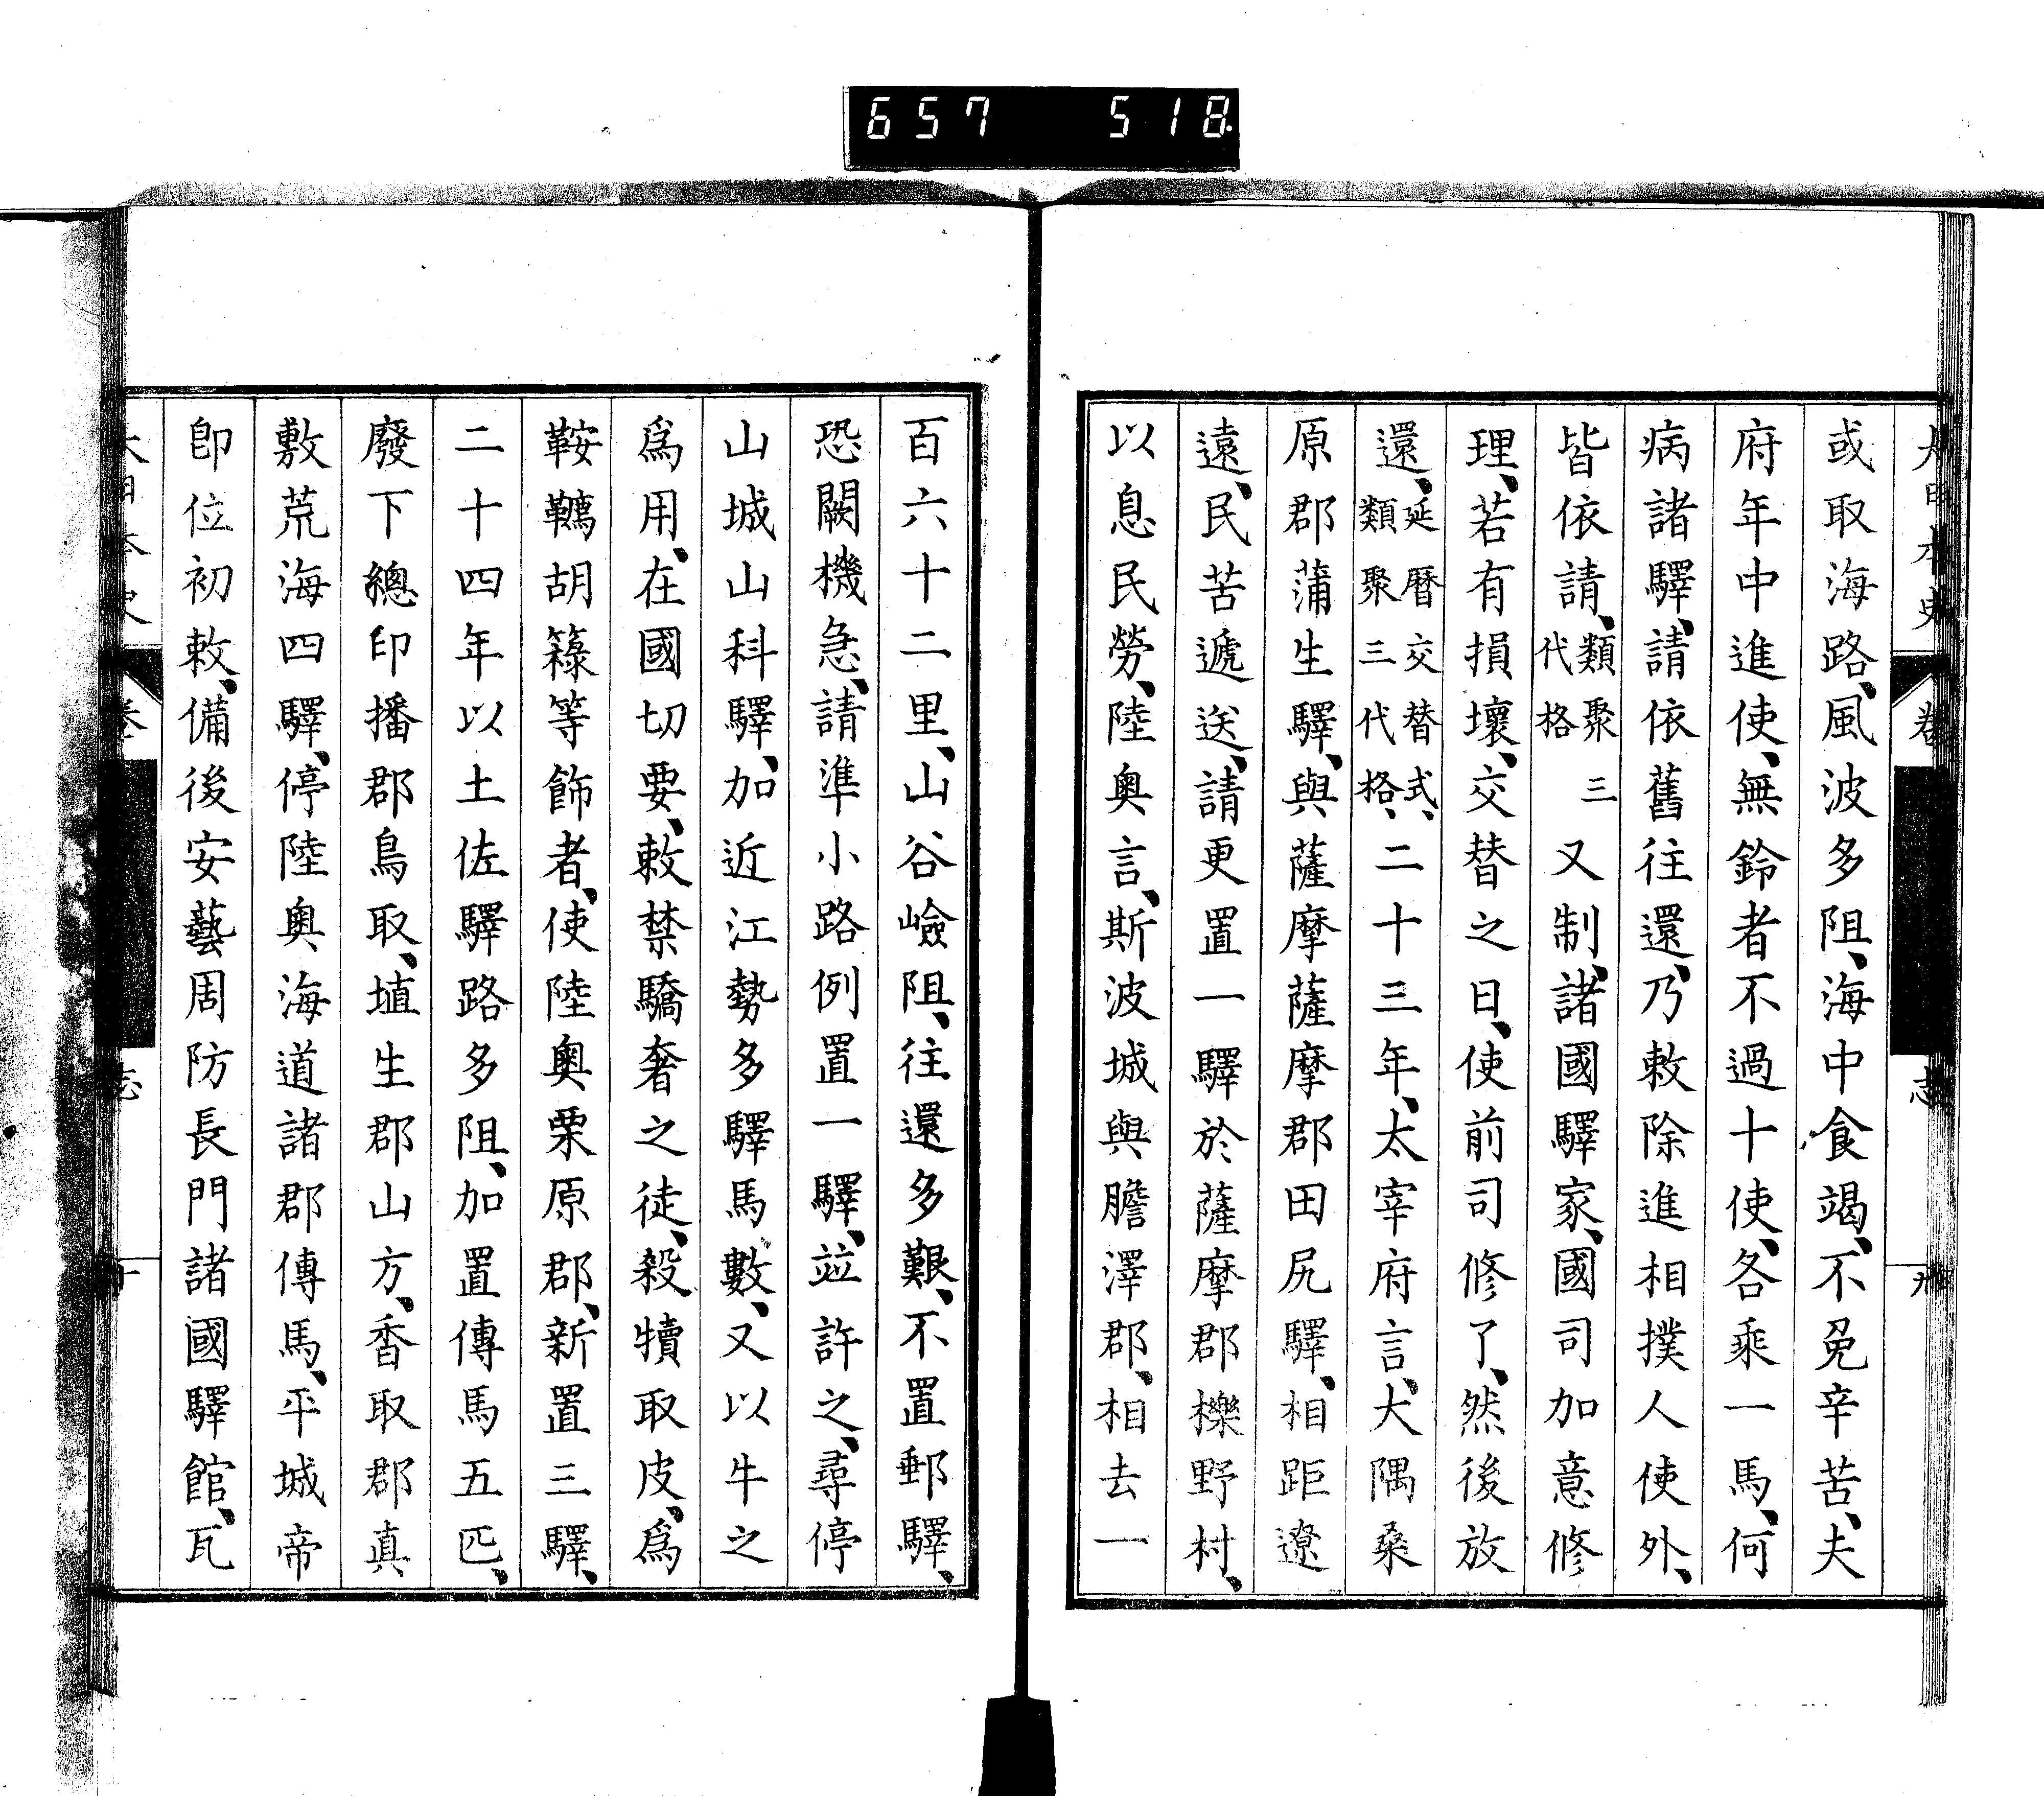 657 518
大日本史 卷 志 九
或取海路、風波多阻、海中食竭、不免辛苦、夫
府年中進使、無鈴者不過十使、各乘一馬、何
病諸驛、請依舊往還、乃敕除進相撲人使外、
皆依請、類聚三代格又制、諸國驛家、國司加意修
理、若有損壞、交替之日、使前司修了、然後放
還、延曆交替式、類聚三代格、二十三年、太宰府言、大隅桑
原郡蒲生驛、與薩摩薩摩郡田尻驛、相距遼
遠、民苦遞送、請更置一驛於薩摩郡櫟野村、
以息民勞、陸奧言、斯波城與膽澤郡、相去一
百六十二里、山谷嶮阻、往還多艱、不置郵驛、
恐闕機急、請準小路例置一驛、竝許之、尋停
山城山科驛、加近江勢多驛馬數、又以牛之
爲用、在國切要、敕禁驕奢之徒、殺犢取皮、爲
鞍韉胡籙等飾者、使陸奧栗原郡、新置三驛、
二十四年以土佐驛路多阻、加置傳馬五匹、
廢下總印播郡鳥取、埴生郡山方、香取郡真
敷荒海四驛、停陸奧海道諸郡傳馬、平城帝
卽位初敕、備後安藝周防長門諸國驛館、瓦
大日本史 卷 志 十